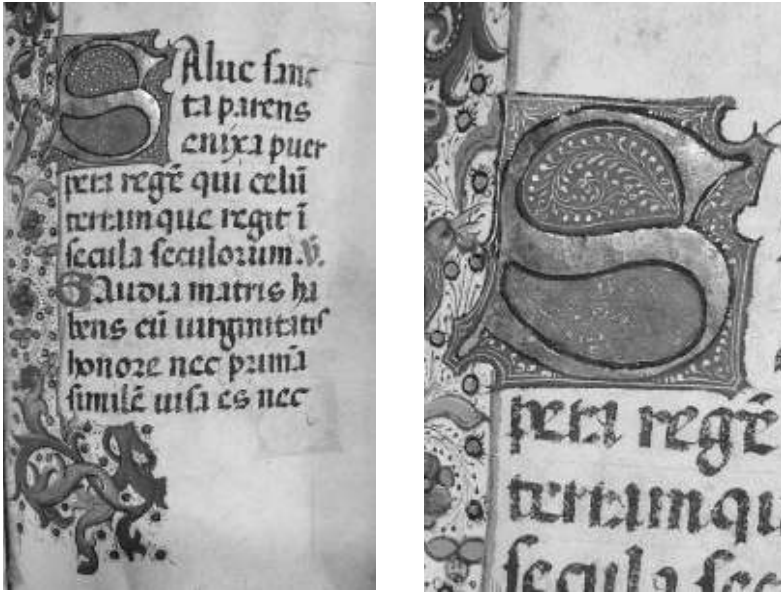 SAlue sanc
ta parens
enixa puer
pera regē qui celū
terramque regit ī
secula seculorum. V.
Gaudia matris ha
bens cū uirginitatis
honore nec primā
similē uisa es nec
pera regē
terramqu
secula sec